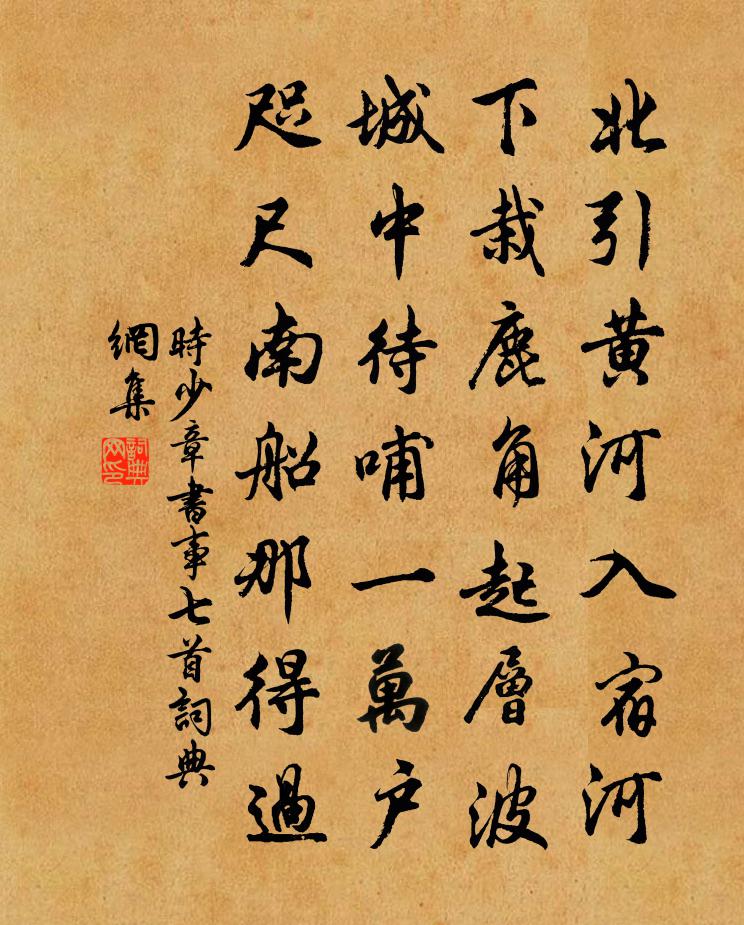 北引黄河入宿河
下栽鹿角起層波
城中待哺一萬户
咫尺南船那得過
時少章書事七首詞典
網集
詞典
网印